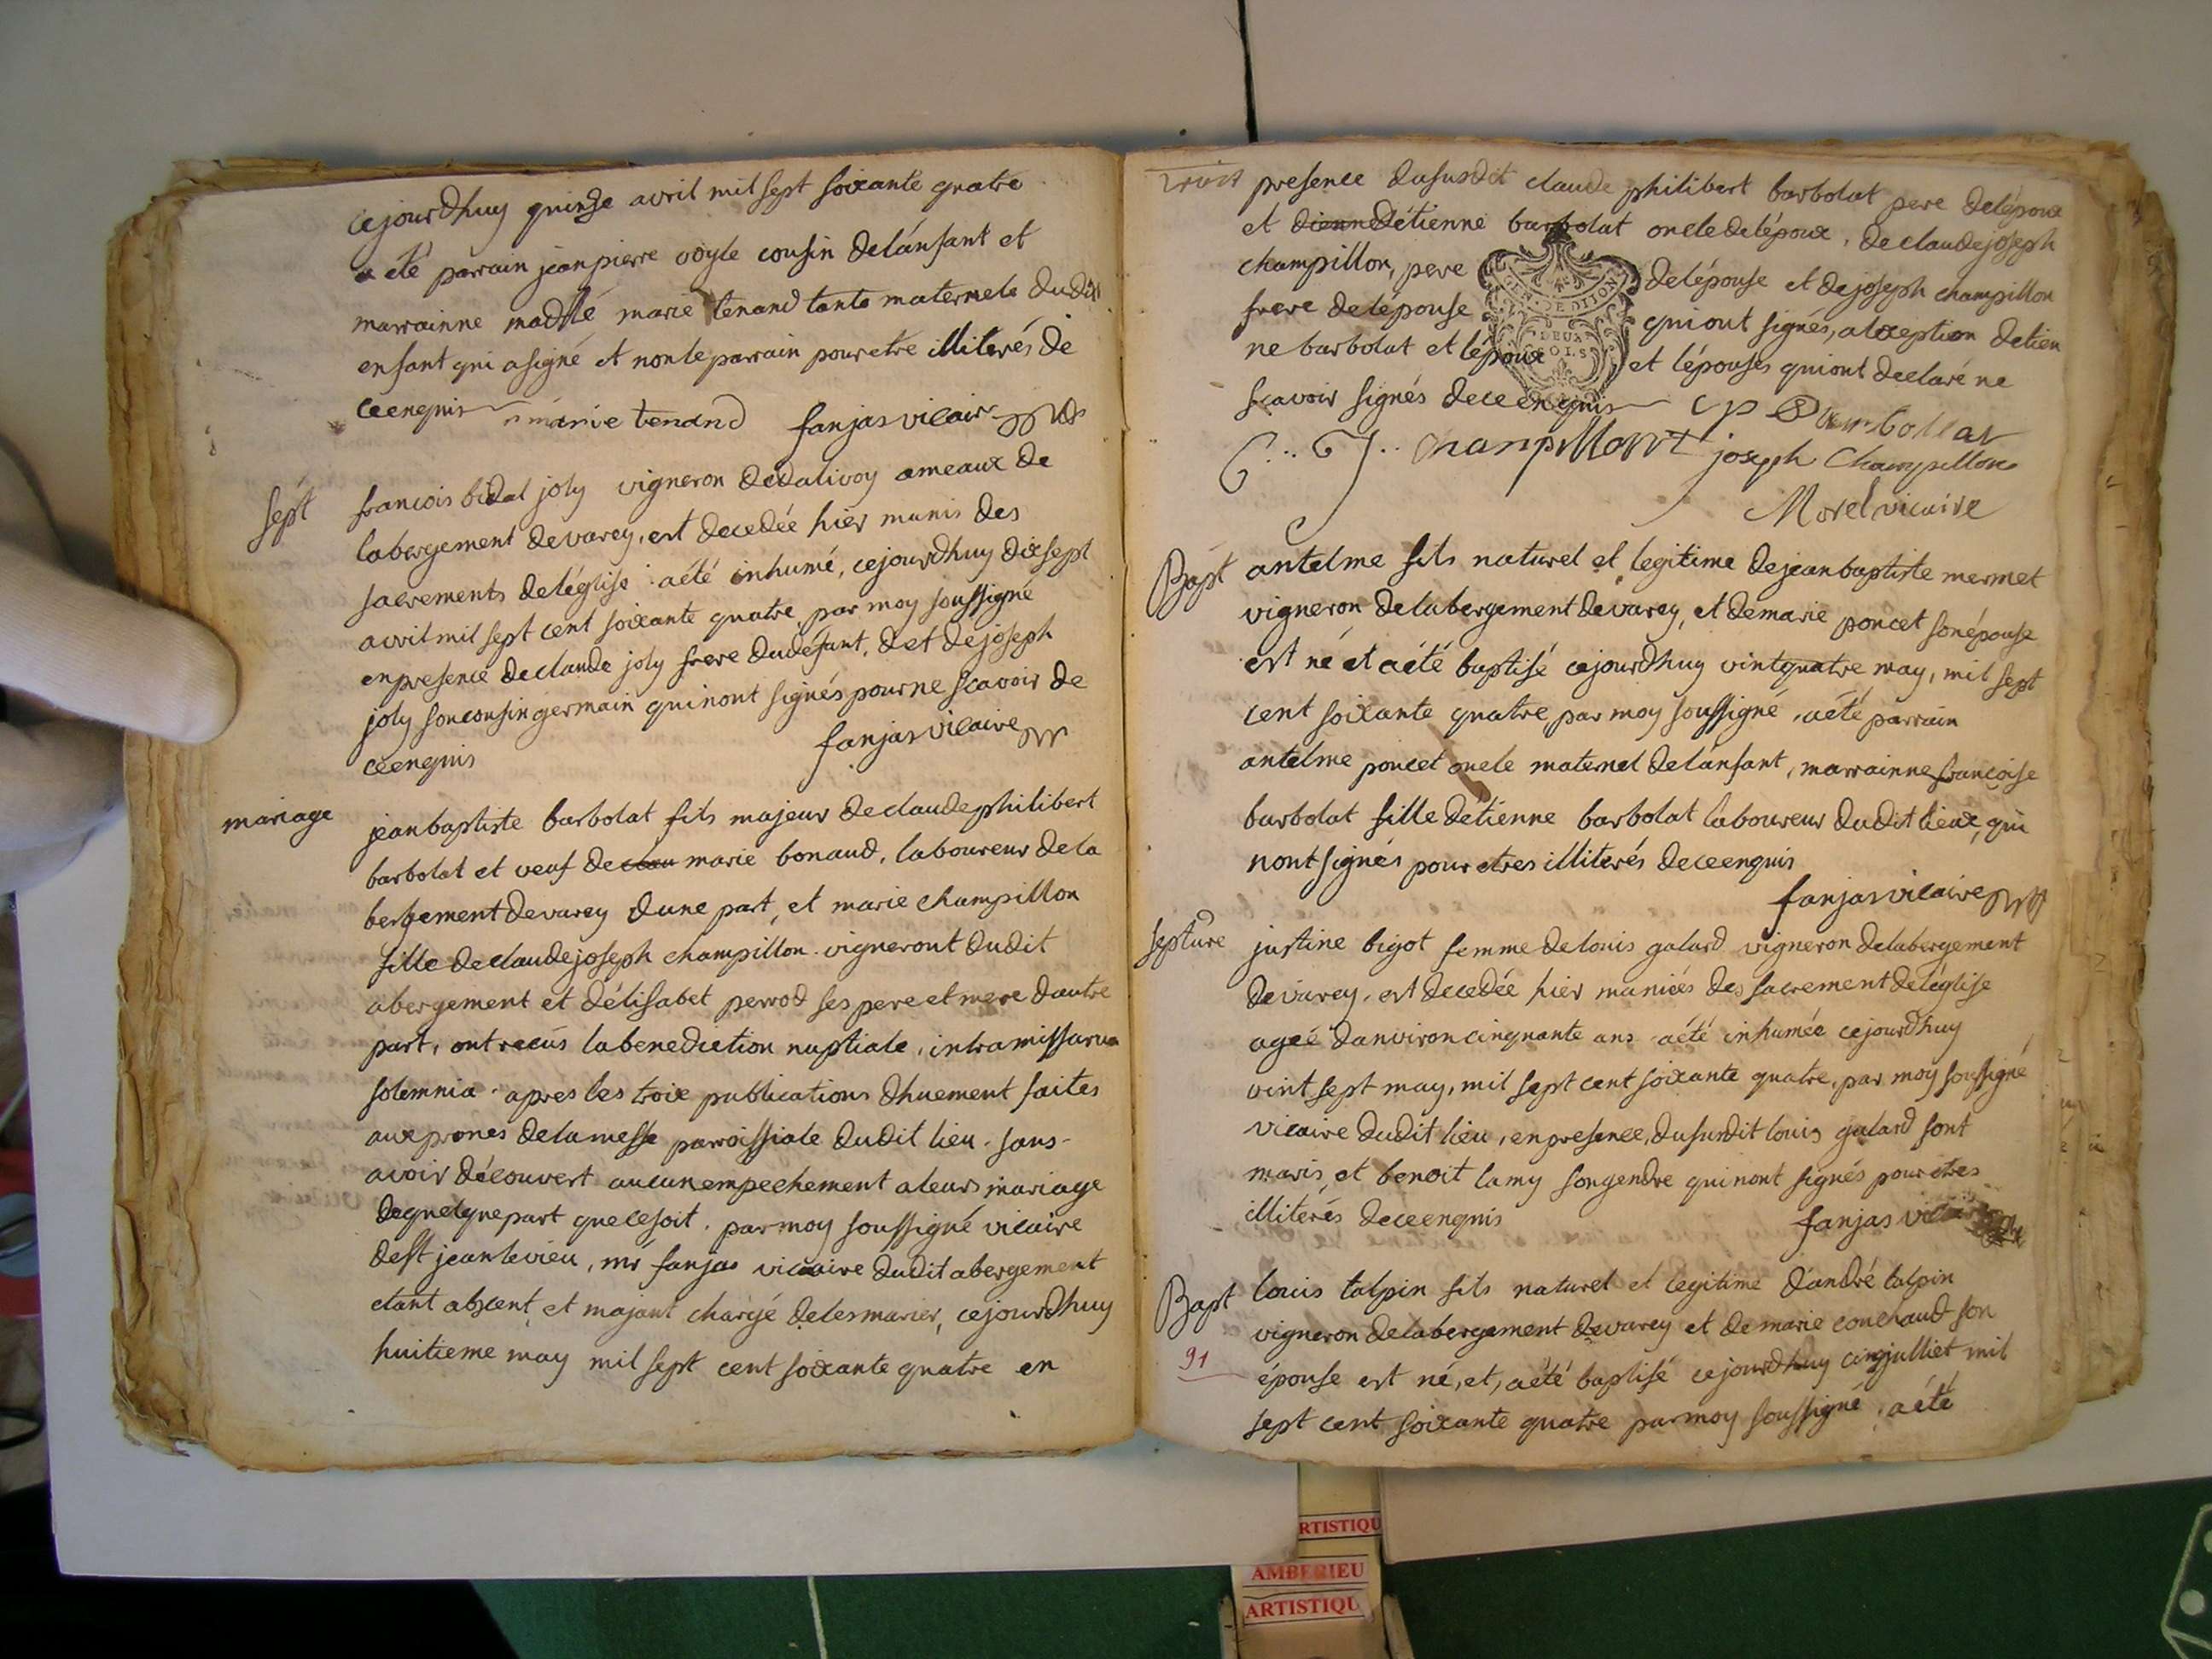 cejourdhuy quinze avril mil sept soixante quatre
a été parrain jean pierre vogle cousin delánfant et
marrainne madlle marie tenand tante maternele dudit
enfant qui asigné et nonleparrain pouretre illiterés de
ceenquis marie tenand fanjas vicaire
sept francois bidal joly vigneron dedalivoy ameaux de
labergement devarey, est decedée hier munis des
sacrements deléglise aété inhumé, cejourdhuy dixsept
avril mil sept cent soixante quatre, par moy soussigné
enpresence declaude joly frere dudéfunt, det dejoseph
joly soncousin germain quinont signés pourne scavoir de
ceenquis fanjas vicaire
mariage jeanbaptiste barbolat fils majeur declaudephilibert
barbolat et veuf de clau marie bonaud, laboureur dela
bergement devarey dune part, et marie champillon
fille declaudejoseph champillon vigneront dudit
abergement et délisabet perrod ses pere et mere dautre
part, ont recús labenediction nuptiale, intramissarum
solemnia apres les troix publications dhuement faites
auxprones delamesse parroissiale dudit lieu sans
avoir découvert aucunempechement aleurs mariage
dequelquepart quecesoit. parmoy soussigné vicaire
dest jeanlevieu, mr fanjas vicaire dudit abergement
etant abscent, et majant chargé delesmarier, cejourdhuy
huitieme may mil sept cent soixante quatre en
presence dususdit claude philibert barbolat pere delépoux
et dienne détienne barbolat oncledelépoux, declaudejoseph
champillon, pere delépouse et dejoseph champillon
frere delépouse quiont signés, alexeption detien
ne barbolat et lépoux et lépouses quiont declaré ne
scavoir signés deceenquis cp Barbollat
C.. J.. Chanpillont joseph Champillon
Morel vicaire
Bapt antelme fils naturel et legitime dejeanbaptiste mermet
vigneron delabergement devarey, et demarie poncet sonépouse
est né et aété baptisé cejourdhuy vintquatre may, mil sept
cent soixante quatre, par moy soussigné, aété parrain
antelme poncet oncle maternel delánfant, marrainne francoise
barbolat fille détienne barbolat laboureur dudit lieux, qui
nontsignés pour etres illiterés deceenquis
fanjas vicaire
septure justine bigot femme delouis galard vigneron delabergement
devarey, est decedée hier muniés des sacrement deléglise
ageé danviron cinquante ans aété inhumée cejourdhuy
vint sept may, mil sept cent soixante quatre, par moy soussigné
vicaire dudit lieu, enpresence, dusurdit louis galard sont
maris et benoit lamy songendre quinont signés pouretres
illiterés deceenquis fanjas vicaire
Bapt louis talpin fils naturel et legitime dándré talpin
vigneron delabergement devarey et de marie conchaud son
91 épouse est né, et, aété baptisé cejourdhuy cinqjulliet mil
sept cent soixante quatre parmoy soussigné, aété
GEN. DE DIJON
DEUX
SOLS
RTISTIQU
AMBERIEU
ARTISTIQU